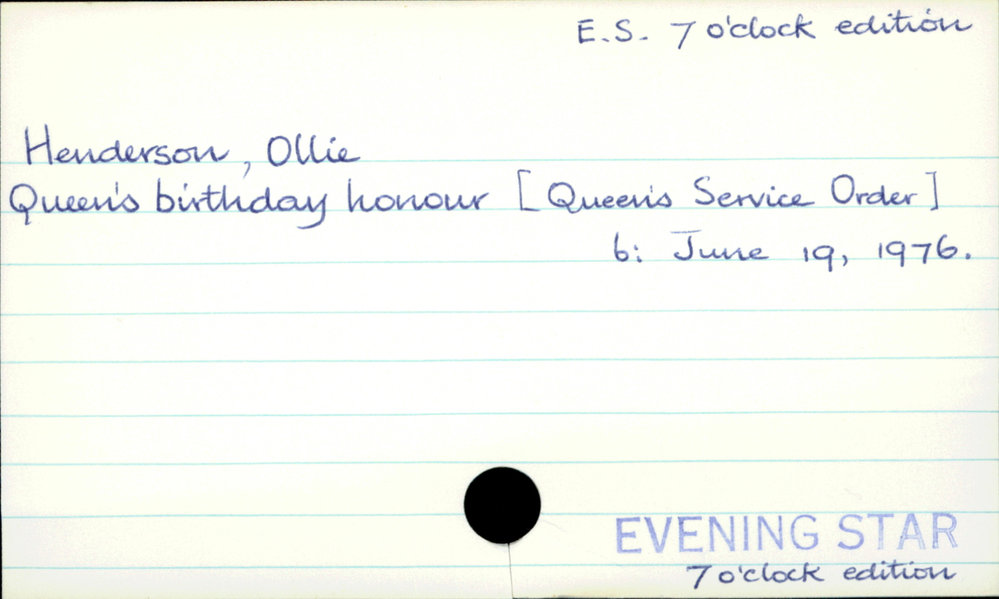 E.S. 7 o'clock edition
Henderson, Ollie
Queen's birthday honour [Queen's Service Order]
6: June 19, 1976.
EVENING STAR
7 o'clock edition